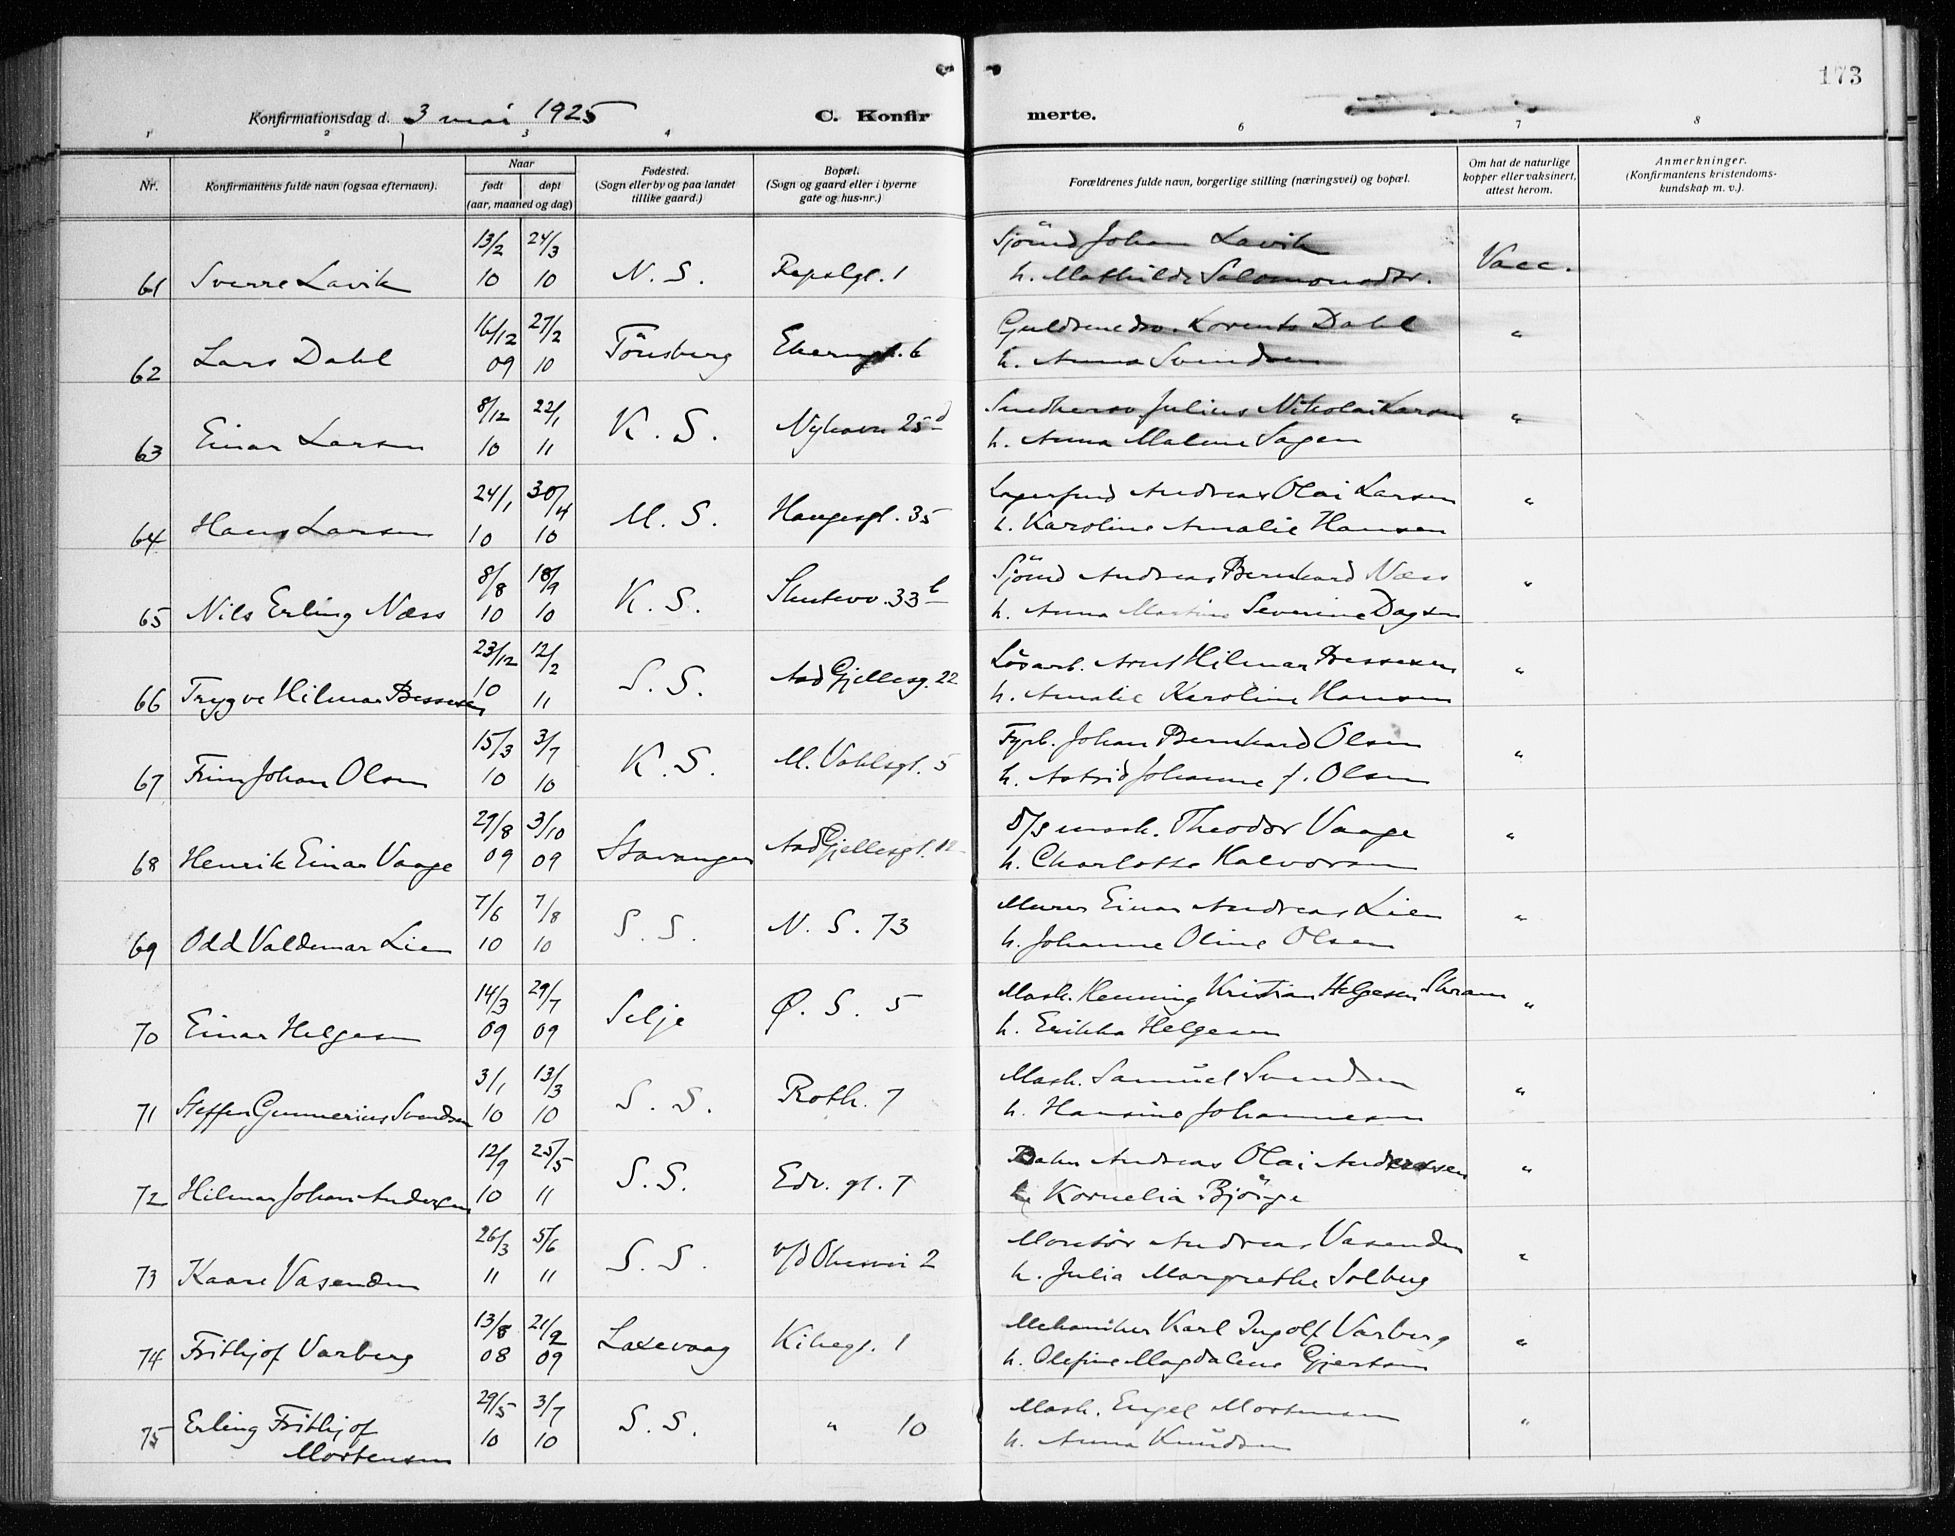 173
Konfirmationsdag d. 3 mai 1925 C. Konfir merte.
1 2 3 4 6 7 8
Nr. Konfirmantens fulde navn (ogsaa efternavn). Naar født døpt (aar, maaned og dag) Fødested. (Sogn eller by og paa landet tillike gaard.) Bopæl. (Sogn og gaard eller i byerne gate og hus-nr.) Forældrenes fulde navn, borgerlige stilling (næringsvei) og bopæl. Om hat de naturlige kopper eller vaksinert, attest herom. Anmerkninger. (Konfirmantens kristendoms-kundskap m. v.).
13/2 24/3 Sjömd Johan Lavik
61 Sverre Lavik 10 10 N. S. Repslgt. 1 h. Mathilde Salomonsdtr. Vacc.
16/12 27/2 Guldsmedsv. Lorents Dahl
62 Lars Dahl 09 10 Tönsberg 6 h. Anna Svendsen "
8/12 22/1 Julius Nikolai Larsen
63 Einar Larsen 10 11 K. S. Nyhavn 25d h. Anna Malene Sagen "
24/1 30/4 Andreas Olai Larsen
64 Hans Larsen 10 10 M. S. Haugesgt. 35 h. Karoline Amalie Hansen "
8/8 18/9 Sjömd Andreas Bernhard Næss
65 Nils Erling Næss 10 10 K. S. Skutevv. 33b h. Anna Martine Severine Dagsen "
23/12 12/2 Lösarb. Arnt Hilmar Bessesen
66 Trygve Hilmar Bessesen 10 11 S. S. Aad Gjellesg. 22 h. Amalie Karoline Hansen "
15/3 3/7 Fyrb. Johan Bernhard Olsen
67 Finn Johan Olsen 10 10 K. S. M. Vahlsgt. 5 h. Astrid Johanne f. Olsen "
29/8 3/10 D/S mask. Theodor Vaage
68 Henrik Einar Vaage 09 09 Stavanger Aad Gjellesgt. 12 h. Charlotte Halvorsen "
7/6 7/8 Murer Einar Andreas Lien
69 Odd Valdemar Lien 10 10 S. S. N. S. 73 h. Johanne Oline Olsen "
14/3 29/7 Mask. Henning Kristian Helgesen Skram
70 Einar Helgesen 09 09 Selje Ø. S. 5 h. Erikka Helgesen "
3/1 13/3 Mask. Samuel Svendsen
71 Steffen Gunnerius Svendsen 10 10 S. S. Roth. 7 h. Hansine Johannesen "
12/9 25/5 Andreas Olai Andersen
72 Hilmar Johan Andersen 10 11 S. S. Edv. gt. 7 h. Kornelia Björge "
26/3 5/6 Montör Andreas Vasenden
73 Kaare Vasenden 11 11 S. S. v/d 2 h. Julia Margrethe Solberg "
13/8 21/2 Mekaniker Karl Ingolf Varberg
74 Frithjof Varberg 08 09 Laxevaag Kihegt. 1 h. Olefine Magdalene Gjertsen "
29/5 3/7 Mask. Engel Mortensen
75 Erling Frithjof 10 10 S. S. " 10 h. Anna Knudsen "
Mortensen